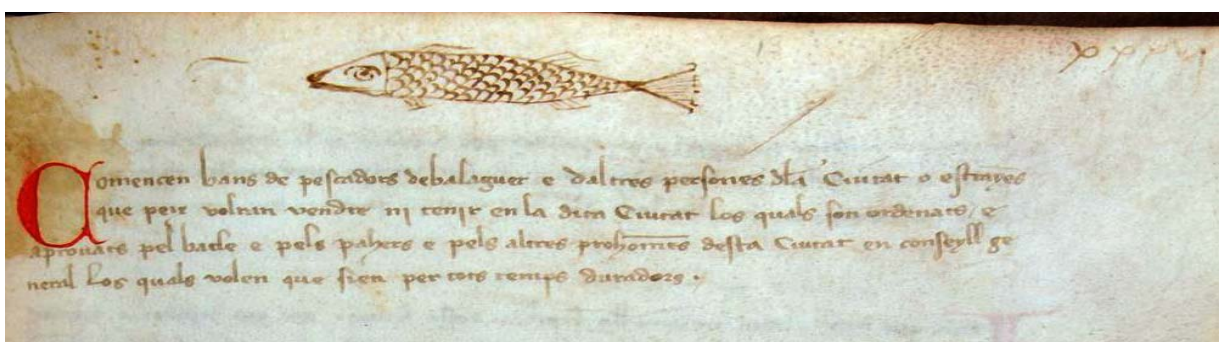 13
xxxvi
Comencen bans de pescadors debalaguer e daltres persones dla Ciutat o estranyes
que peix volran vendre ni tenir en la dita Ciutat los quals son ordenats / e
aprouats pel batle e pels pahers e pels altres prohomes desta Ciutat en conseyll ge
neral los quals volen que sien per tots temps duradors .